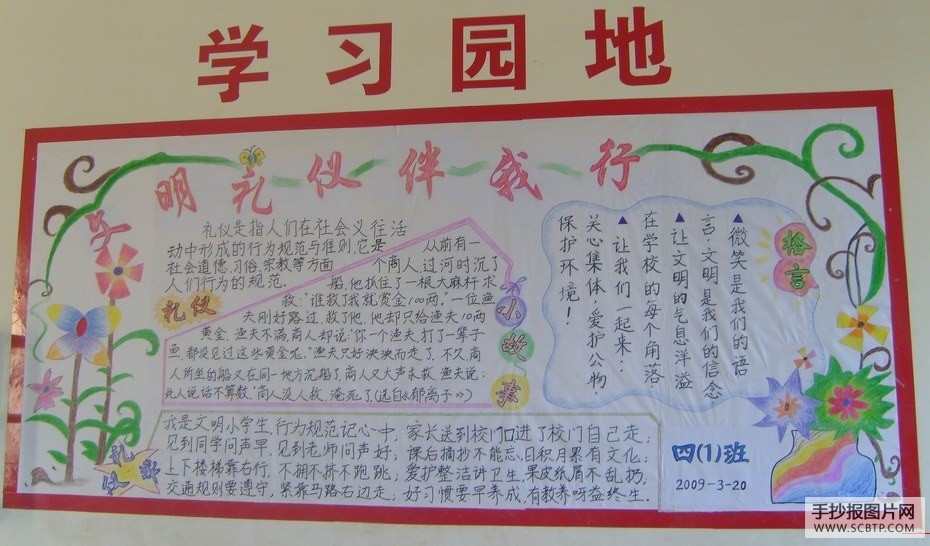 学习园地
文明礼仪伴我行
礼仪
礼仪是指人们在社会义往活
动中形成的行为规范与准则,它是
社会道德、习俗、宗教等方面
人们行为的规范.
小故事
从前有一
个商人,过河时沉了
船,他抓住了一根大麻杆求
救:“谁救了我就赏金100两,”一位渔
夫刚好路过,救了他,他却只给渔夫10两
黄金,渔夫不满,商人却说:“你一个渔夫,打了一辈子
鱼,都没见过这些黄金呢”渔夫只好泱泱而走了,不久,商
人所坐的船又在同一地方沉船了,商人又大声求救,渔夫说:
此人说话不算数,商人没人救,淹死了.(选自《郁离子》)
格言
▲微笑是我们的语
言,文明是我们的信念
▲让文明的气息洋溢
在学校的每个角落
▲让我们一起来:
关心集体,爱护公物,
保护环境!
礼仪歌
我是文明小学生,行为规范记心中,家长送到校门口,进了校门自己走;
见到同学问声早,见到老师问声好;课后摘抄不能忘,日积月累有文化;
上下楼梯靠右行,不拥不挤不跑跳;爱护整洁讲卫生,果皮纸屑不乱扔,
交通规则要遵守,紧靠马路右边走,好习惯要早养成,有教养呀益终生.
四(1)班
2009-3-20
手抄报图片网
WWW.SCBTP.COM